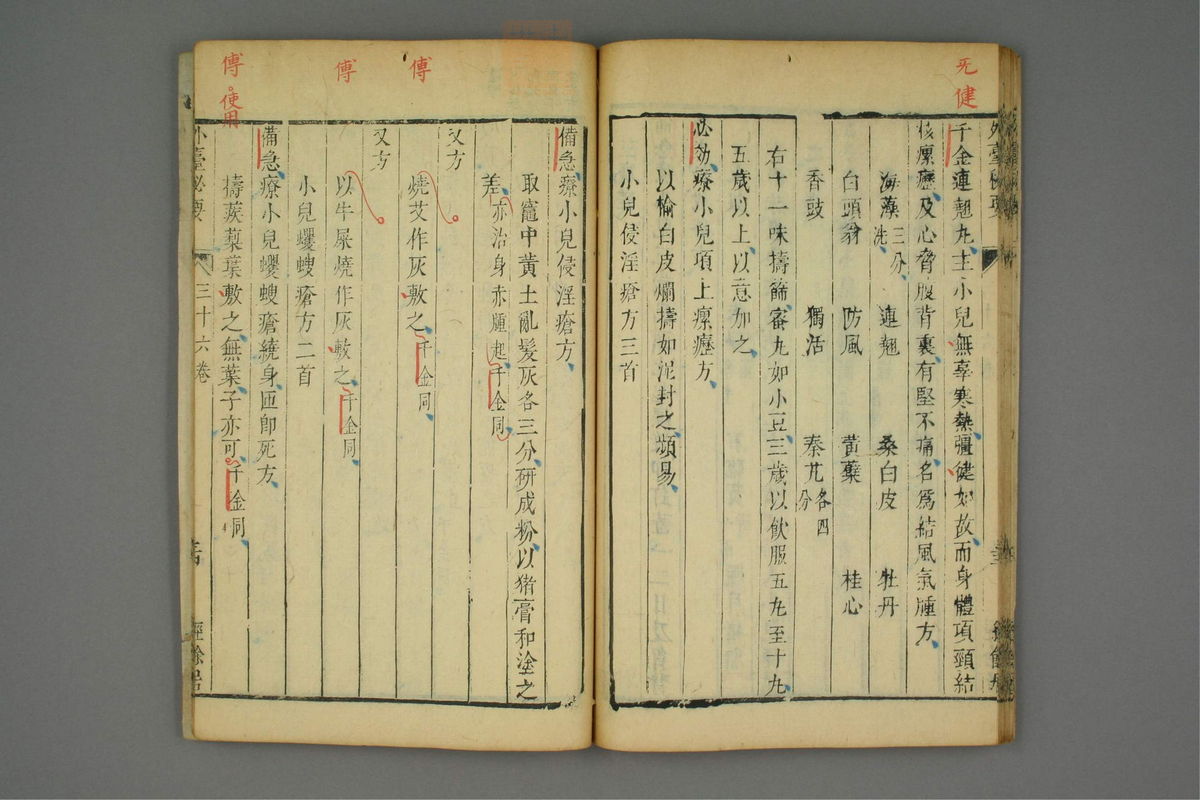 旡健
千金連翹丸主小兒無辜寒熱彊健如故而身體項頸結
核瘰癧及心脅腹背裏有堅不痛名爲結風氣腫方
海藻三分洗 連翹 桑白皮 牡丹
白頭翁 防風 黃蘗 桂心
香豉 獨活 秦艽各四分
右十一味擣篩蜜丸如小豆三歲以飲服五丸至十丸
五歲以上以意加之
必効療小兒項上瘰癧方
以榆白皮爛擣如泥封之頻易
小兒侵淫瘡方三首
備急療小兒侵淫瘡方
取竈中黃土亂髮灰各三分研成粉以猪膏和塗之
差亦治身赤腫起千金同
又方
傅
燒艾作灰敷之千金同
又方
傅
以牛屎燒作灰敷之千金同
小兒蠼螋瘡方二首
備急療小兒蠼螋瘡繞身匝卽死方
傅 使用
擣蒺䔧葉敷之無葉子亦可千金同
外臺秘要 三十六卷 經餘居